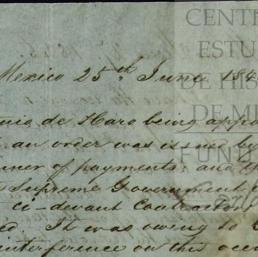 CENTE
ESTU
DE HIS
DE ME
FUND
Mexico 25th June 184
de Haro being appo
an order was issued by
ner of payments, and th
Supreme Government
ci-devant Contractor
ed. It was owing to
nterference on this occa